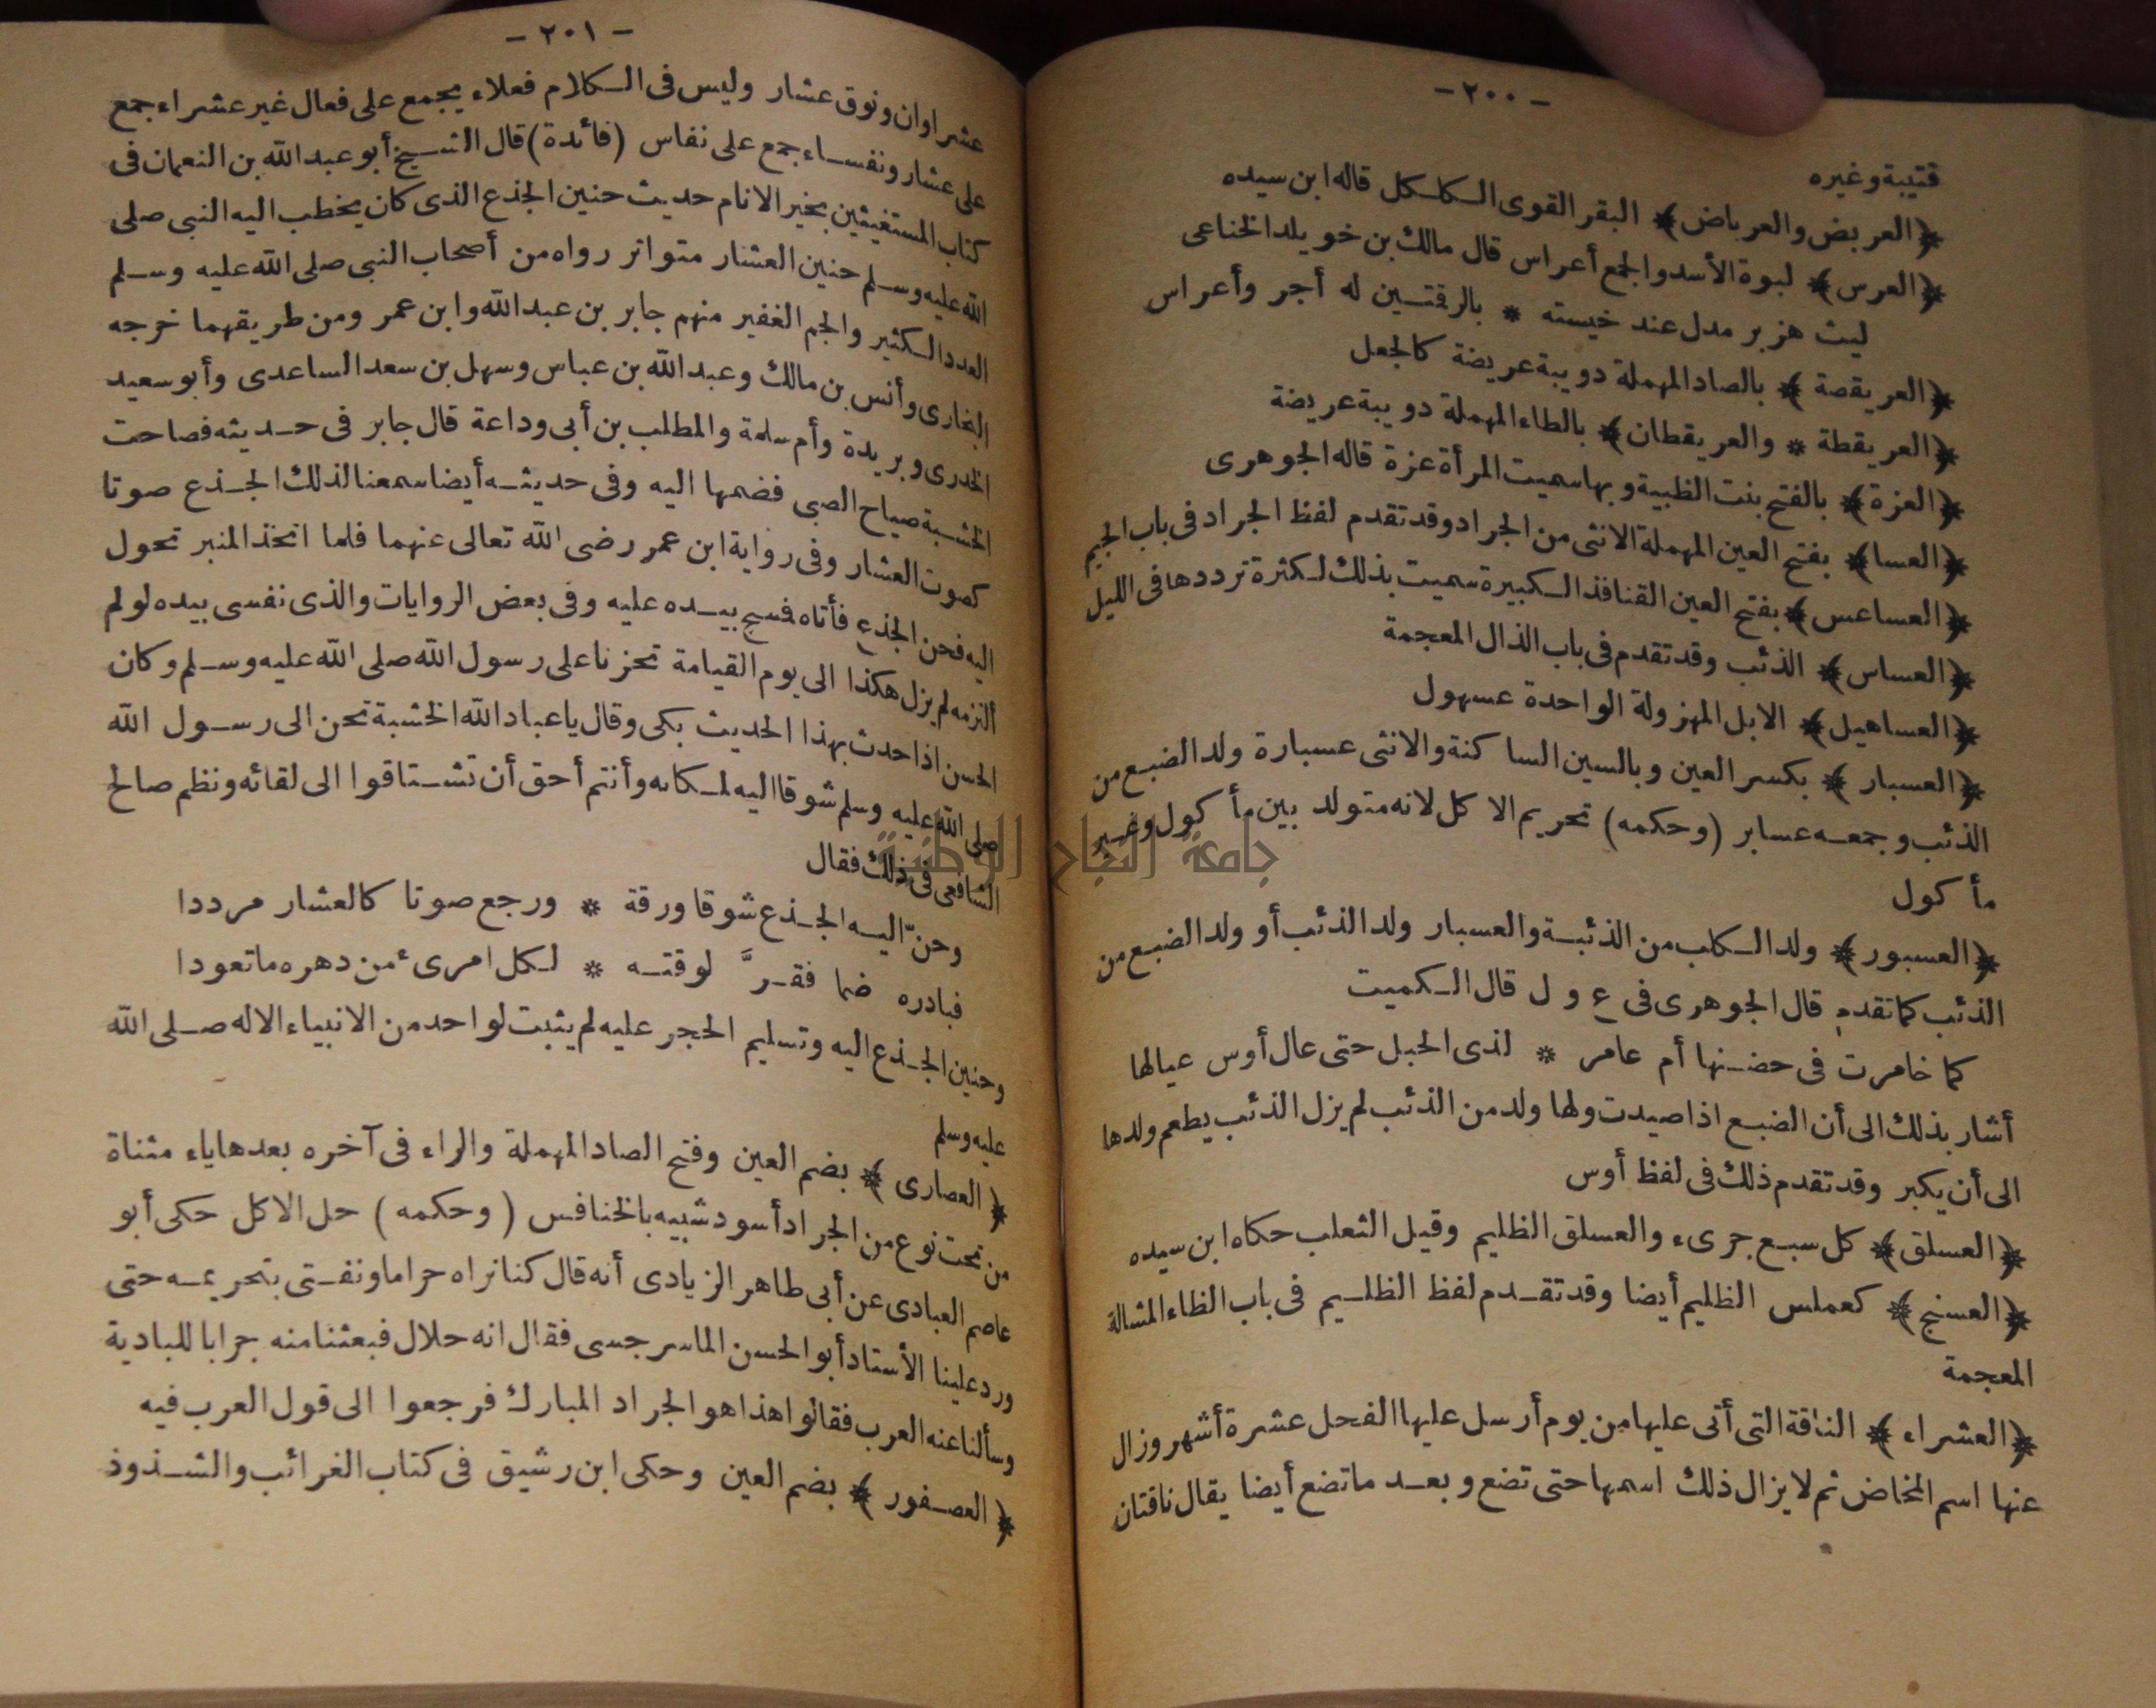 - ٢٠٠ -
قتيبة وغيره
﴿العربض والعرباض﴾ البقر القوى الكلكل قاله ابن سيده
﴿العرس﴾ لبوة الأسد والجمع أعراس قال مالك بن خويلد الخناعى
ليث هزبر مدل عند خيسته * بالرقتين له أجر وأعراس
﴿العريقصة﴾ بالصاد المهملة دويبة عريضة كالجعل
﴿العريقطة * والعريقطان﴾ بالطاء المهملة دويبة عريضة
﴿العزة﴾ بالفتح بنت الظبية وبها سميت المرأة عزة قاله الجوهرى
﴿العسا﴾ بفتح العين المهملة الانثى من الجراد وقد تقدم لفظ الجراد فى باب الجيم
﴿العساعس﴾ بفتح العين القنافذ الكبيرة سميت بذلك لكثرة ترددها فى الليل
﴿العساس﴾ الذئب وقد تقدم فى باب الذال المعجمة
﴿العساهيل﴾ الابل المهزولة الواحدة عسهول
﴿العسبار﴾ بكسر العين وبالسين الساكنة والانثى عسبارة ولد الضبع من
الذئب وجمعه عسابر (وحكمه) تحريم الا كل لانه متولد بين مأ كول وغير
مأ كول
﴿العسبور﴾ ولد الكلب من الذئبة والعسبار ولد الذئب أو ولد الضبع من
الذئب كما تقدم قال الجوهرى فى ع و ل قال الكميت
كما خامرت فى حضنها أم عامر * لذى الحبل حتى عال أوس عيالها
أشار بذلك الى أن الضبع اذا صيدت ولها ولد من الذئب لم يزل الذئب يطعم ولدها
الى أن يكبر وقد تقدم ذلك فى لفظ أوس
﴿العسلق﴾ كل سبع جرىء والعسلق الظليم وقيل الثعلب حكاه ابن سيده
﴿العسنج﴾ كعملس الظليم أيضا وقد تقدم لفظ الظليم فى باب الظاء المشالة
المعجمة
﴿العشراء﴾ الناقة التى أتى عليها من يوم أرسل عليها الفحل عشرة أشهر وزال
عنها اسم المخاض ثم لا يزال ذلك اسمها حتى تضع وبعد ما تضع أيضا يقال ناقتان
- ٢٠١ -
عشراوان ونوق عشار وليس فى الكلام فعلاء يجمع على فعال غير عشراء جمع
على عشار ونفساء جمع على نفاس (فائدة) قال الشيخ أبو عبد الله بن النعمان فى
كتاب المستغيثين بخير الانام حديث حنين الجذع الذى كان يخطب اليه النبى صلى
الله عليه وسلم حنين العشار متواتر رواه من أصحاب النبى صلى الله عليه وسلم
العدد الكثير والجم الغفير منهم جابر بن عبد الله وابن عمر ومن طريقهما خرجه
البخارى وأنس بن مالك وعبد الله بن عباس وسهل بن سعد الساعدى وأبو سعيد
الخدرى وبريدة وأم سلمة والمطلب بن أبى وداعة قال جابر فى حديثه فصاحت
الخشبة صياح الصبى فضمها اليه وفى حديثه أيضا سمعنا لذلك الجذع صوتا
كصوت العشار وفى رواية ابن عمر رضى الله تعالى عنهما فلما اتخذ المنبر تحول
اليه فحن الجذع فأتاه فمسح بيده عليه وفى بعض الروايات والذى نفسى بيده لو لم
ألتزمه لم يزل هكذا الى يوم القيامة تحزنا على رسول الله صلى الله عليه وسلم وكان
الحسن اذا حدث بهذا الحديث بكى وقال يا عباد الله الخشبة تحن الى رسول الله
صلى الله عليه وسلم شوقا اليه لمكانه وأنتم أحق أن تشتاقوا الى لقائه ونظم صالح
الشافعى فى ذلك فقال
وحنّ اليه الجذع شوقا ورقة * ورجع صوتا كالعشار مرددا
فبادره ضما فقرَّ لوقته * لكل امرىء من دهره ما تعودا
وحنين الجذع اليه وتسليم الحجر عليه لم يثبت لواحد من الانبياء الا له صلى الله
عليه وسلم
﴿العصارى﴾ بضم العين وفتح الصاد المهملة والراء فى آخره بعدها ياء مثناة
من تحت نوع من الجراد أسود شبيه بالخنافس (وحكمه) حل الاكل حكى أبو
عاصم العبادى عن أبى طاهر الزيادى أنه قال كنا نراه حراما ونفتى بتحريمه حتى
ورد علينا الأستاد أبو الحسن الماسرجسى فقال انه حلال فبعثنا منه جرابا للبادية
وسألنا عنه العرب فقالوا هذا هو الجراد المبارك فرجعوا الى قول العرب فيه
﴿العصفور﴾ بضم العين وحكى ابن رشيق فى كتاب الغرائب والشذوذ
جامعة النجاح الوطنية